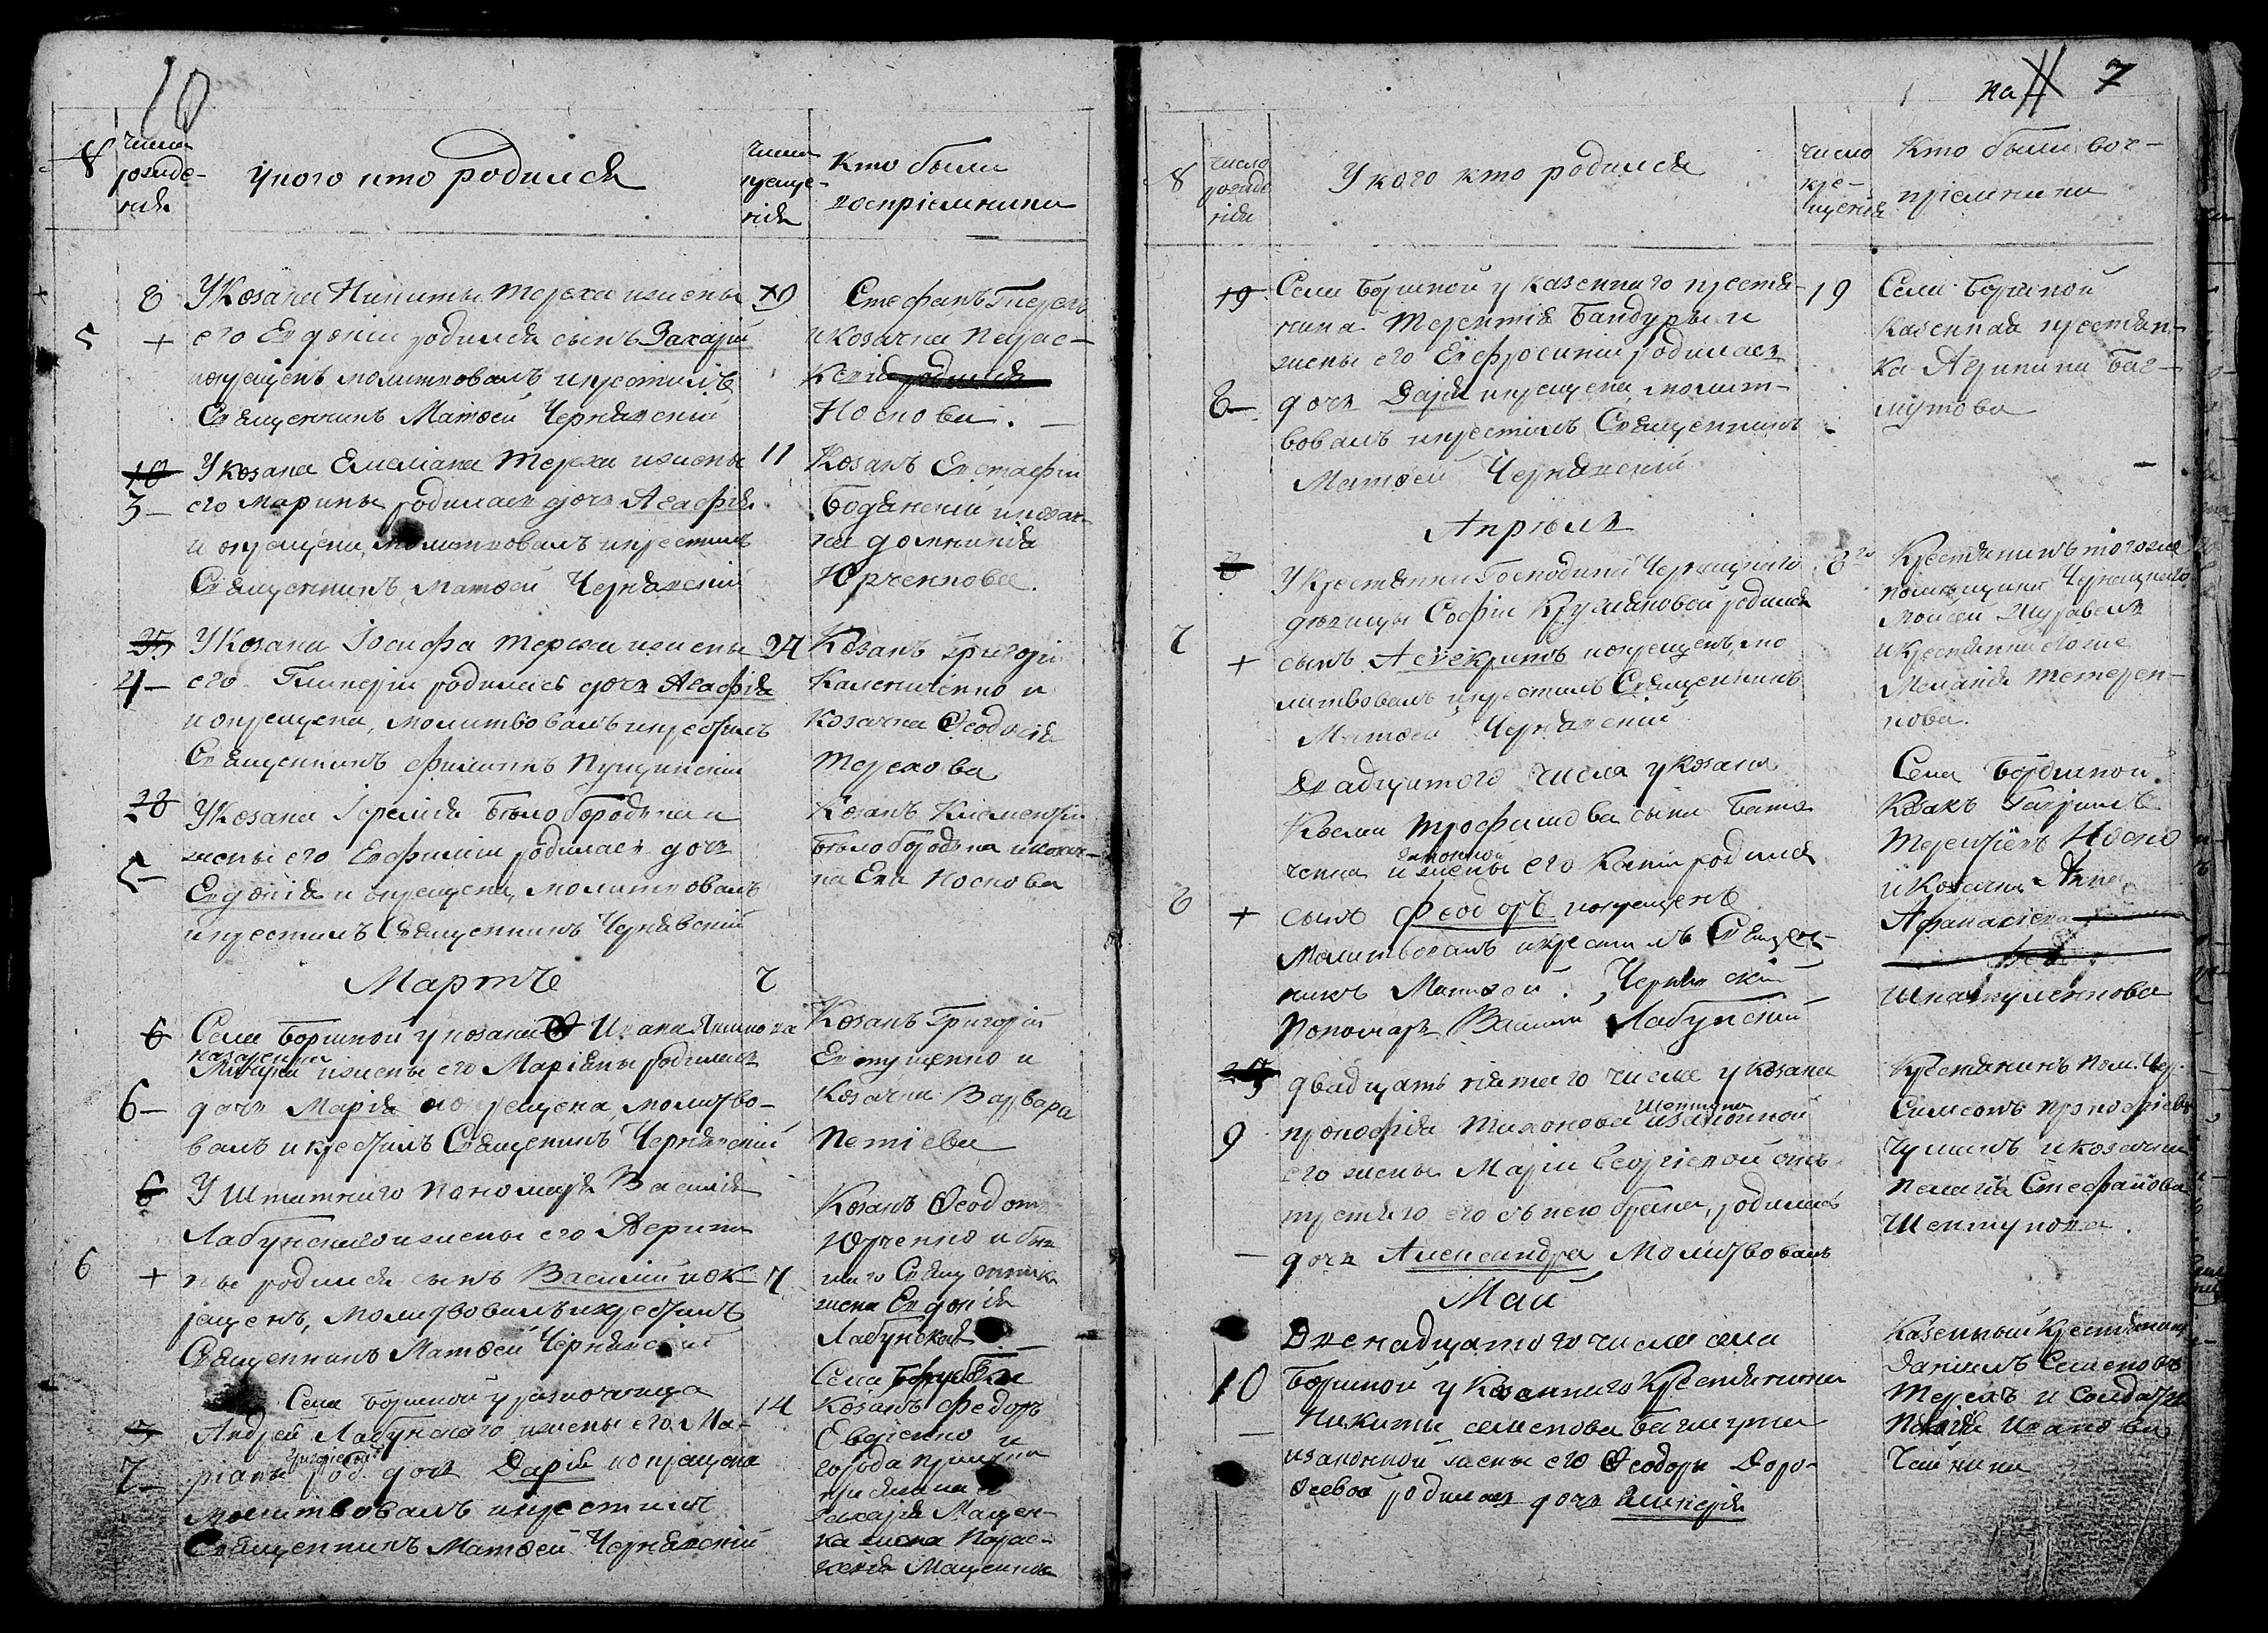 10
№
число рожде-
нія
У кого кто родился
число креще-
нія
Кто были
воспріемники
8
У Козака Никиты Тереха и жены
5
+
его Евдокіи родился сынъ Захарій
и крещенъ молитвовалъ и крестилъ
Священникъ Матѳей Чернявскій
Стефанъ Терехъ
и козачка Парас-
кевія
Носкова.
10
У козака Емеліана Тереха и жены
3
его Марины родилась дочь Агафія
и окрещена, молитвовалъ и крестилъ
Священникъ Матѳей Чернявскій
11
Козакъ Евстафій
Бодянскій и козач-
ка Домникія
Юрченкова.
У Козака Іосифа Терехи и жены
4
его Гликеріи родилась дочь Агафія
и окрещена, молитвовалъ и крестилъ
Священникъ Филиппъ Пущинскій
24
Козакъ Григорій
Калениченко и
Козачка Ѳеодосія
Терехова
28
У Козака Іереміи Бѣлобородька и
жены его Евфиміи родилась дочь
5
Евдокія и окрещена, молитвовалъ
и крестилъ Священникъ Чернявскій
Козакъ Климентій
Бѣлобородька и козач-
ка Ева Носкова
Мартъ
6
Села Боршной у козака Ивана Якимова
и жены его Маріаны родилась
6
дочь Марія и окрещена, молитво-
валъ и крестилъ Священникъ Чернявскій
7
Козакъ Григорій
Евтушенко и
Козачка Варвара
Петіева
6
У Штатнаго Пономаря Василія
Лабунскаго и жены его Агрипи
6
+
ны родился сынъ Василій и ок-
рещенъ, молитвовалъ и крестилъ
Священникъ Матѳей Чернявскій
7
Козакъ Ѳеодотъ
Юрченко и быв
шаго Священника
жена Евдокія
Лабунская
13
Села Боршной у разночинца
Андрея Лабунскаго и жены его Ма-
Григоріевой
7
ріаны род. дочь Дарія и окрещена
молитвовалъ и крестилъ
Священникъ Матѳей Чернявскій
14
Села
Козакъ Федоръ
Евсіенко и
города Прилукъ
Захарія Мащен-
ка жена Парас-
кевія Мащенкова
на 7
№
число рожде
нія
У кого кто родился
число
кре-
щенія
Кто были вос-
пріемники
19
Села Боршной у казеннаго крестя-
нина Терентія Бандуры и
жены его Евфросиніи родилась
8
дочь Дарія и крещена, молит-
вовалъ и крестилъ Священникъ
Матѳей Чернявскій
19
Села Боршной
Казенная крестян-
ка Агрипина Баг-
мутова
Апрѣль
8
У Крестянки Госпожиной Чернецкаго
дѣвицы Софіи Кругляковой родился
7
+
сынъ Асинкритъ и крещенъ, мо
литвовалъ и крестилъ Священникъ
Матѳей Чернявскій
8го
Крестянинъ того же
помѣщика Чернецкаго
Моисей Журавель
и Крестянка его же
Меланія Тетерен-
кова.
Двадцатого числа у козака
Косми Трофимова сына
законной
жены его родился
8
+
сынъ Феодоръ и окрещенъ
молитвовалъ и крестилъ Священ-
никъ Матѳей Чернявский
Пономарь Василий Лабунский
Села Боршной
Козакъ Гаврилъ
Терентіевъ Носко
и Козачка Анна
Афанасіева
Шкатуленкова
двадцать пятаго числа у козака
Шептуна
9
Прокофія Тихонова и законной
его жены Маріи Георгіевой отъ
третяго его съ нею брака, родилась
дочь Александра Молитвовалъ
Крестянинъ Пом. Чер.
Симеонъ Прокофіевъ
Чумакъ и козачка
Пелагія Стефанова
Шептунова.
Май
Двенадцатого числа села
10
Боршной у Казеннаго Крестянина
Никиты Семенова Багмута
и законной жены его Ѳеодоры Доро-
ѳеевой родилась дочь Гликерія
Казенный Крестянинъ
Даніилъ Семеновъ
Терехъ и солдатка
Пелагія Иванова
Чайкина